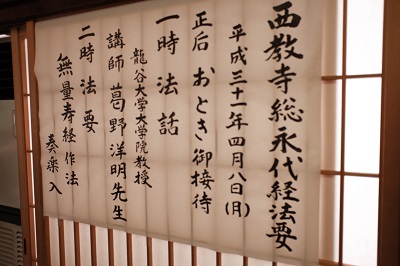 西教寺総永代経法要
平成三十一年四月八日(月)
正后 おとき御接待
一時 法話
龍谷大学大学院教授
講師 葛野洋明先生
二時 法要
無量寿経作法
奏楽入